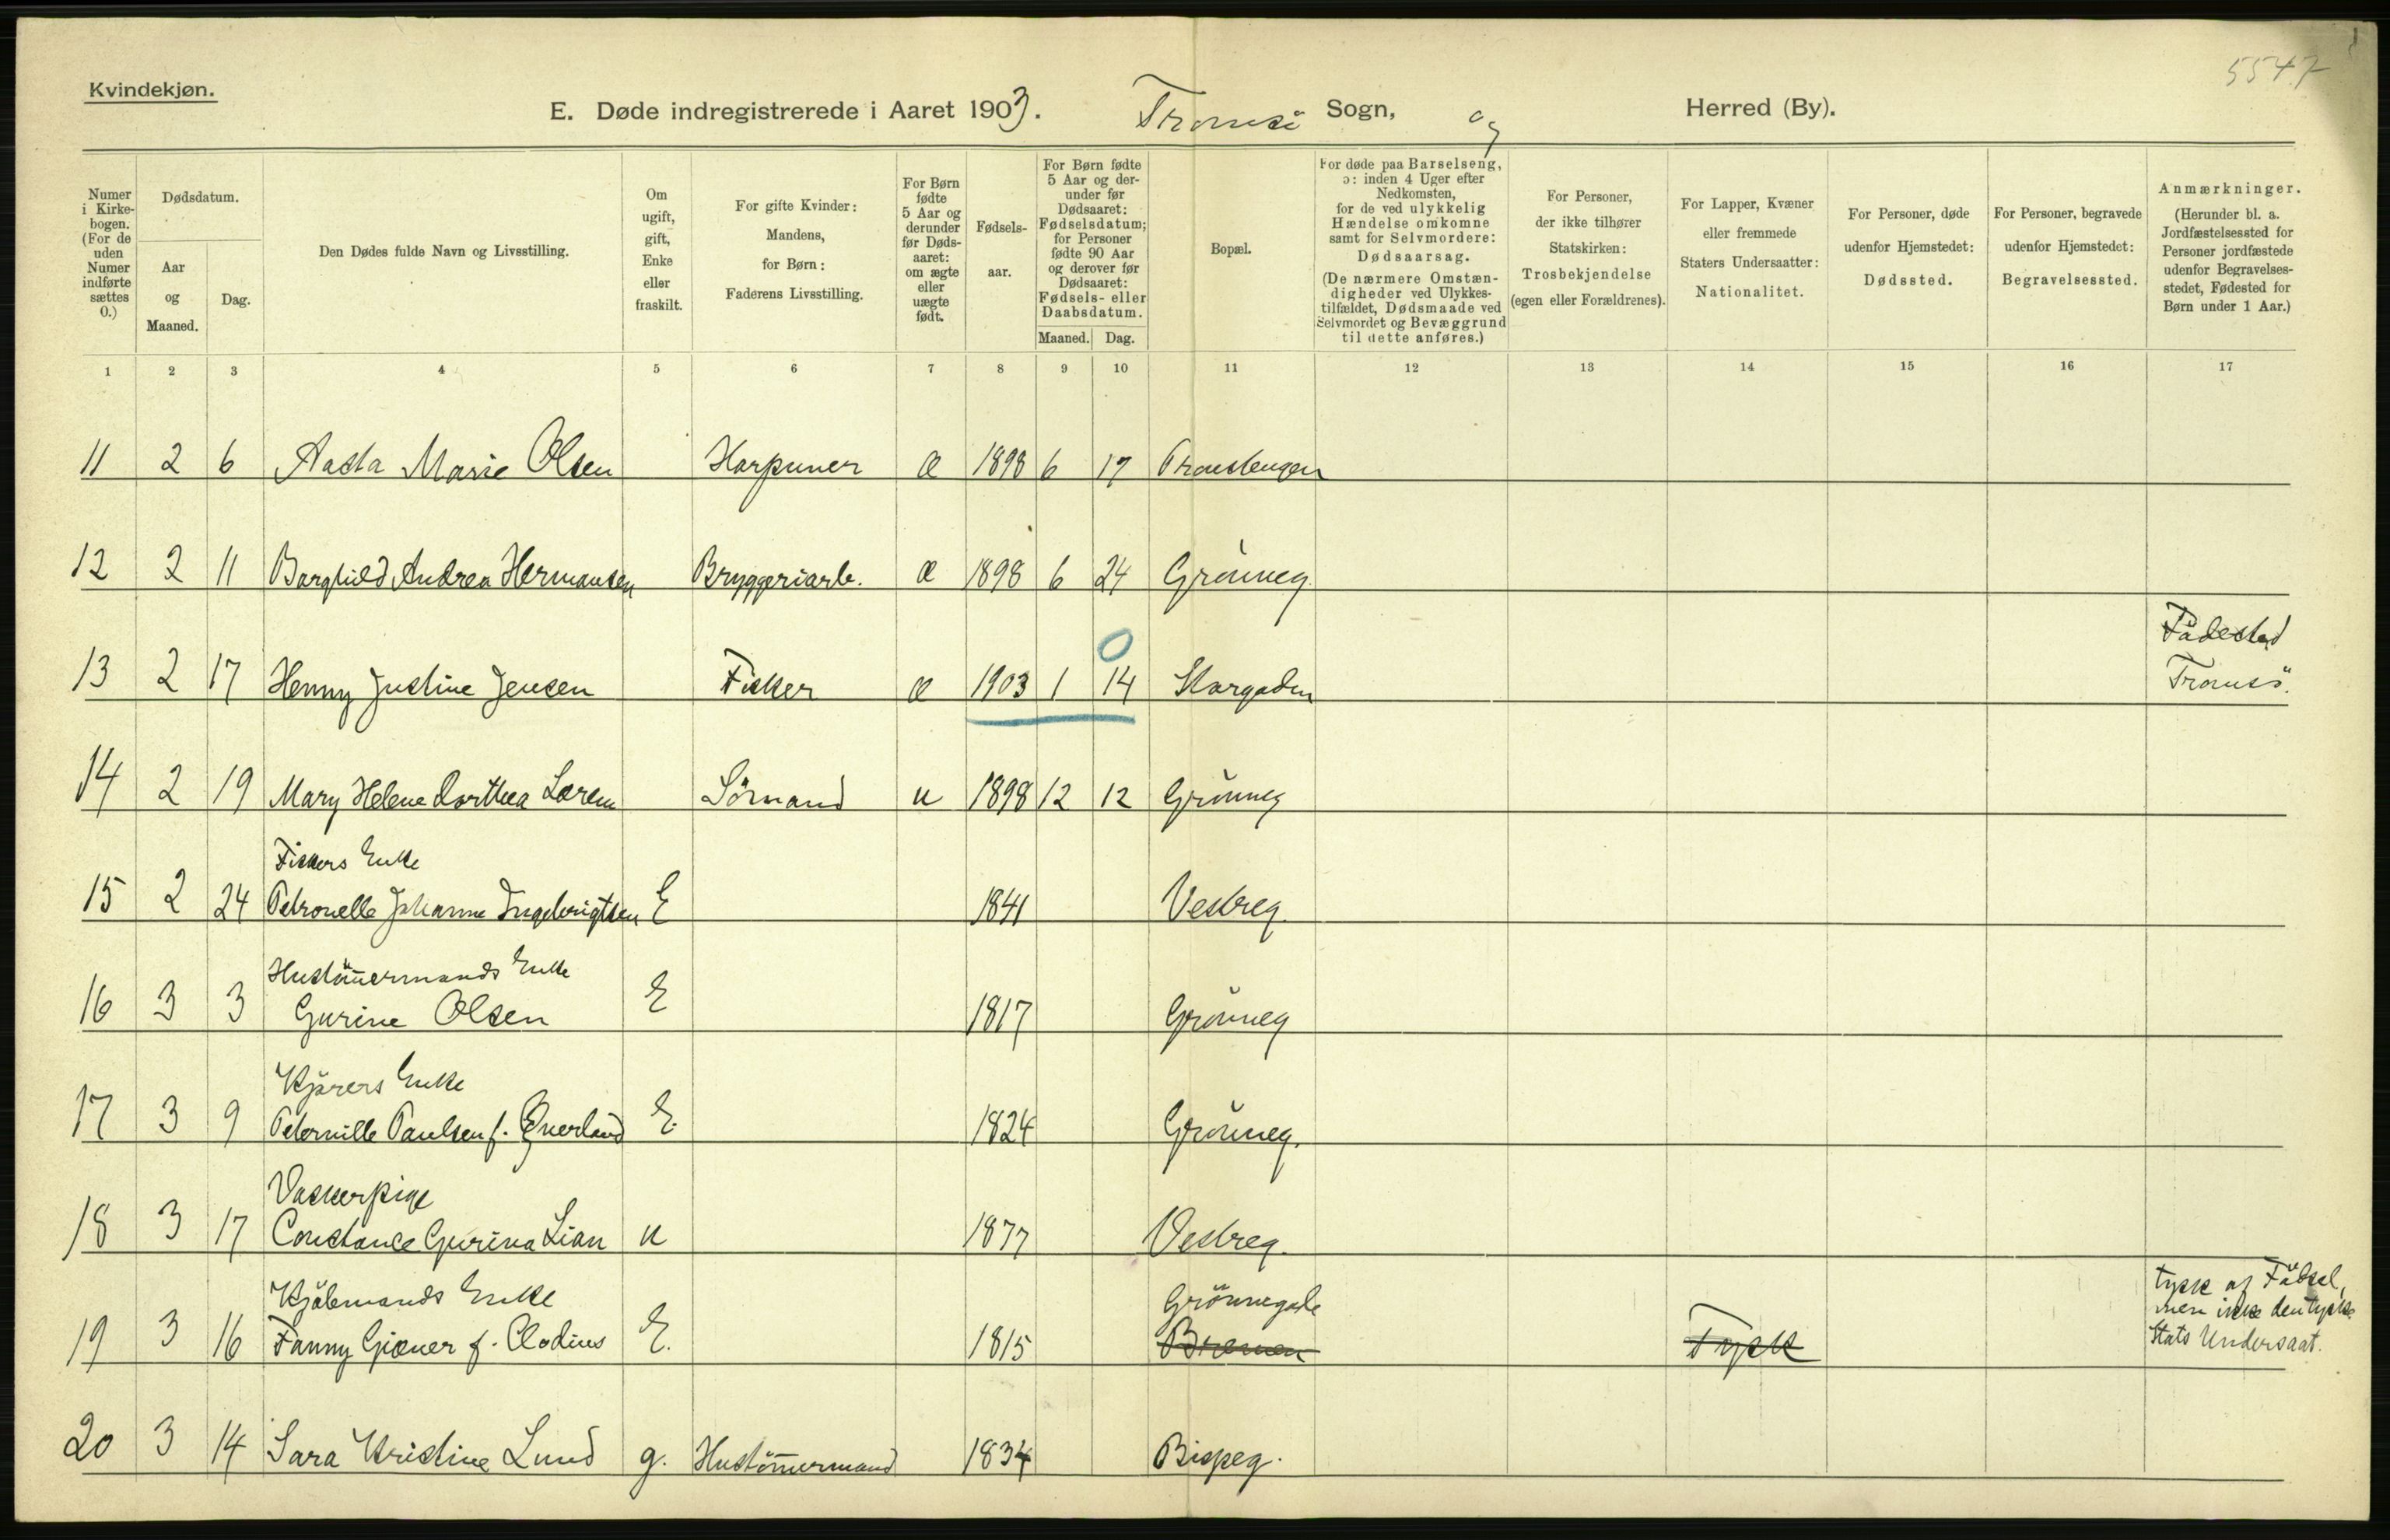 5547
Kvindekjøn.
E. Døde indregistrerede i Aaret 1903. Tromsö Sogn, og Herred (By).
Numer i Kirkebogen. (For de uden Numer indførte sættes 0.)
Dødsdatum.
Aar og Maaned.
Dag.
Den Dødes fulde Navn og Livsstilling.
Om ugift, gift, Enke eller fraskilt.
For gifte Kvinder: Mandens, for Børn: Faderens Livsstilling.
For Børn fødte 5 Aar og derunder før Dødsaaret: om ægte eller uægte født.
Fødselsaar.
For Børn fødte 5 Aar og derunder før Dødsaaret: Fødselsdatum; for Personer fødte 90 Aar og derover før Dødsaaret: Fødsels- eller Daabsdatum.
Maaned. Dag.
Bopæl.
For døde paa Barselseng, ɔ: inden 4 Uger efter Nedkomsten, for de ved ulykkelig Hændelse omkomne samt for Selvmordere: Dødsaarsag. (De nærmere Omstændigheder ved Ulykkestilfældet, Dødsmaade ved Selvmordet og Bevæggrund til dette anføres.)
For Personer, der ikke tilhører Statskirken: Trosbekjendelse (egen eller Forældrenes).
For Lapper, Kvæner eller fremmede Staters Undersaatter: Nationalitet.
For Personer, døde udenfor Hjemstedet: Dødssted.
For Personer, begravede udenfor Hjemstedet: Begravelsessted.
Anmærkninger. (Herunder bl. a. Jordfæstelsessted for Personer jordfæstede udenfor Begravelsesstedet, Fødested for Børn under 1 Aar.)
1 2 3 4 5 6 7 8 9 10 11 12 13 14 15 16 17
11 2 6 Aasta Marie Olsen Harpuner Æ 1898 6 17
12 2 11 Borghild Andrea Hermansen Bryggeriarb. Æ 1898 6 24 Grönneg.
0 Födested
13 2 17 Henny Justine Jensen Fisker Æ 1903 1 14 Storgaden Tromsö.
14 2 19 Mary Helene Dorthea Lorem Sömand u 1898 12 12 Grönneg
Fiskers Enke
15 2 24 Petronelle Johanne Ingebrigtsen E 1841 Vestreg.
Hustömermands Enke
16 3 3 Gurine Olsen E 1817 Grönneg
Kjörers Enke
17 3 9 Peternille Paulsen f. Qverland E. 1824 Grönneg.
Vaskerpige
18 3 17 Constance Gurina Lian u 1877 Vestreg.
Kjöbmands Enke Grönnegade tysk af Födsel, men ikke den tyske Stats Undersaat.
19 3 16 Fanny Giæver f. Clodius E. 1815 Bremen Tysk
20 3 14 Sara Kristine Lund g. Hustömermand 1834 Bispeg.